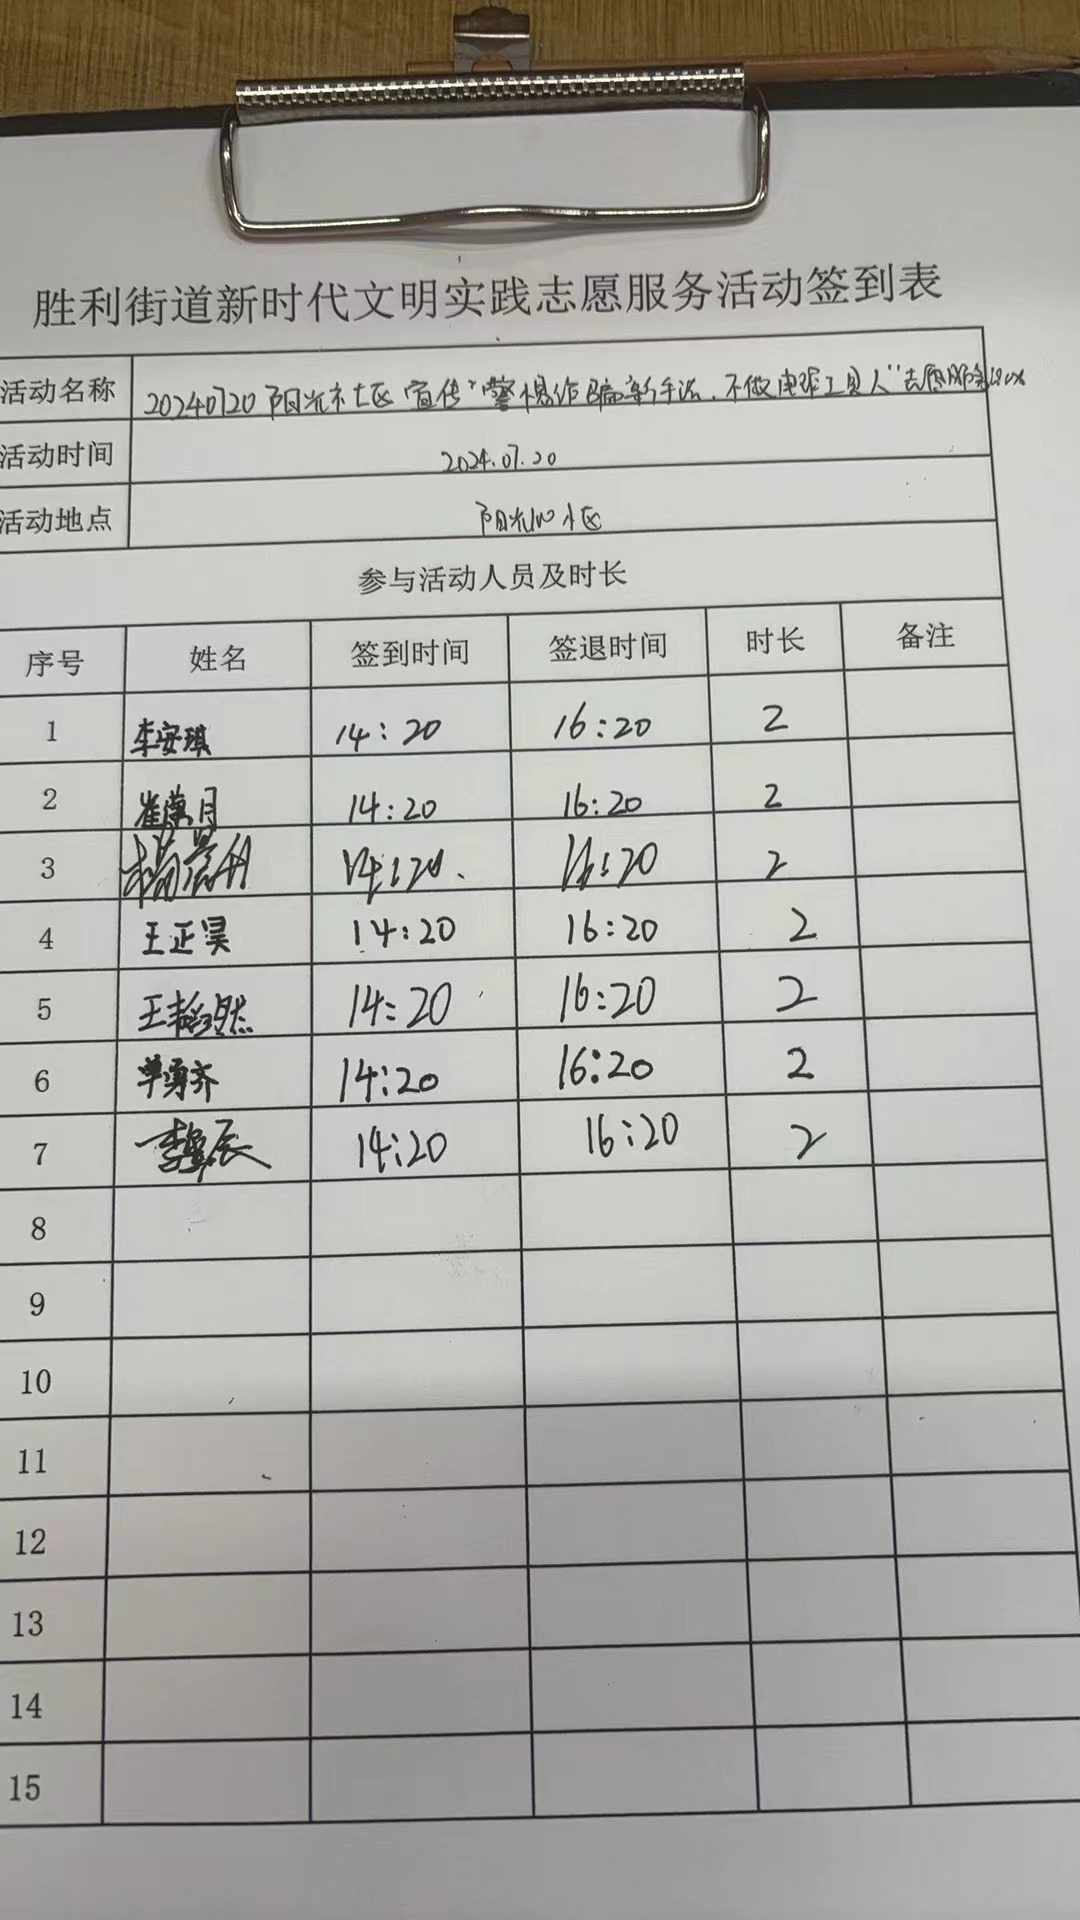 胜利街道新时代文明实践志愿服务活动签到表
活动名称 20240720阳光社区宣传"警惕诈骗新手法,不做电诈工具人"志愿服务活动
活动时间 2024.07.20
活动地点 阳光 小区
参与活动人员及时长
序号 姓名 签到时间 签退时间 时长 备注
1 李安琪 14:20 16:20 2
2 崔 月 14:20 16:20 2
3 杨 14:20. 16:20 2
4 王正昊 14:20 16:20 2
5 王 然 14:20 16:20 2
6 单勇齐 14:20 16:20 2
7 李 辰 14:20 16:20 2
8
9
10
11
12
13
14
15